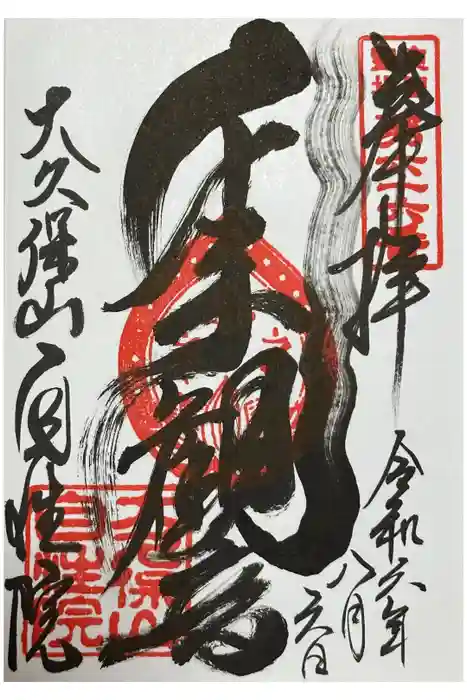 奉拝
令和六年
八月
六日
千手観音
大久保山自性院
大久保山
自性院